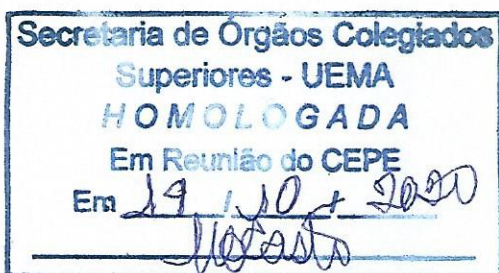 Secretaria de Órgãos Colegiados
Superiores - UEMA
HOMOLOGADA
Em Reunião do CEPE
Em 19 / 10 / 2020